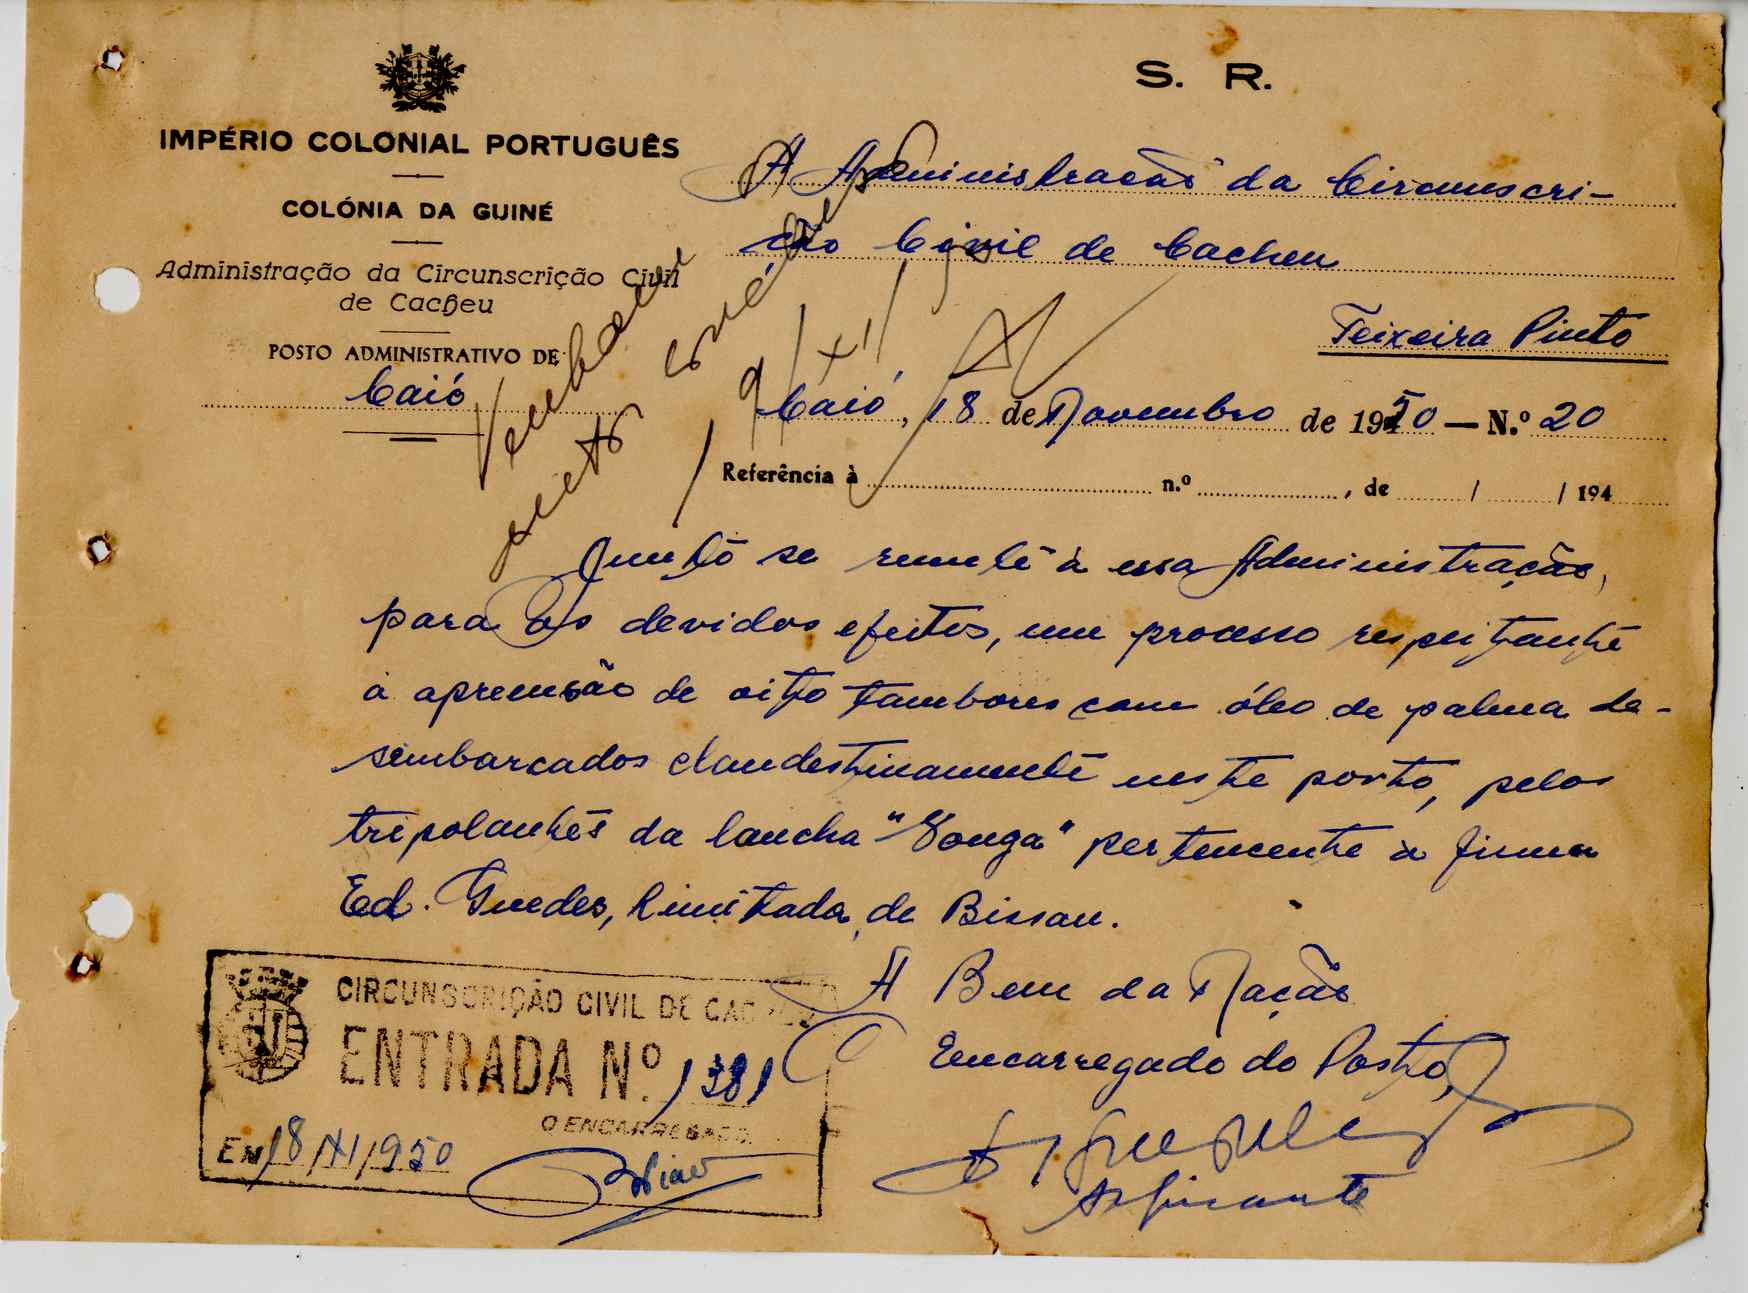 S. R.
IMPÉRIO COLONIAL PORTUGUÊS
COLÓNIA DA GUINÉ
Administração da Circunscrição Civil
de Cacheu
POSTO ADMINISTRATIVO DE
Caió
Á Administração da Circunscri-
ção Civil de Cacheu
Teixeira Pinto
Caió, 18 de Novembro de 1950 — N.º 20
Referência à n.º , de / / 194
19/XI/50
Junto se remete à essa Administração,
para os devidos efeitos, um processo respeitante
à apreensão de oito tambores com óleo de palma de-
sembarcados clandestinamente neste porto, pelos
tripolantes da lancha "Gouga" pertencente à firma
Ed. Guedes, Limitada, de Bissau.
A Bem da Nação
O Encarregado do Posto,
Aspirante
CIRCUNSCRIÇÃO CIVIL DE CACHEU
ENTRADA N.º 1381
O ENCARREGADO
EM 18/XI/950